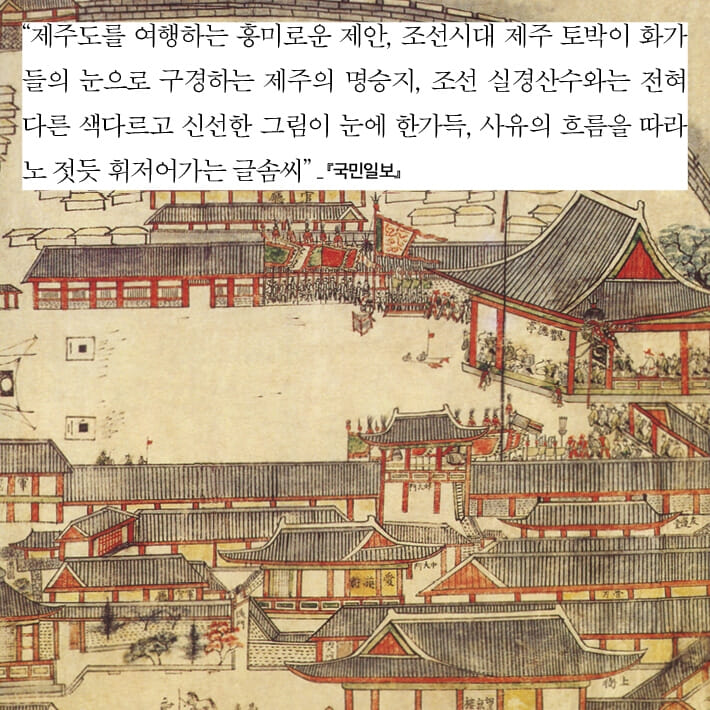 “제주도를 여행하는 흥미로운 제안, 조선시대 제주 토박이 화가
들의 눈으로 구경하는 제주의 명승지, 조선 실경산수와는 전혀
다른 색다르고 신선한 그림이 눈에 한가득, 사유의 흐름을 따라
노 젓듯 휘저어가는 글솜씨” _『국민일보』
觀德亭
中大門
軍官廳
上衙